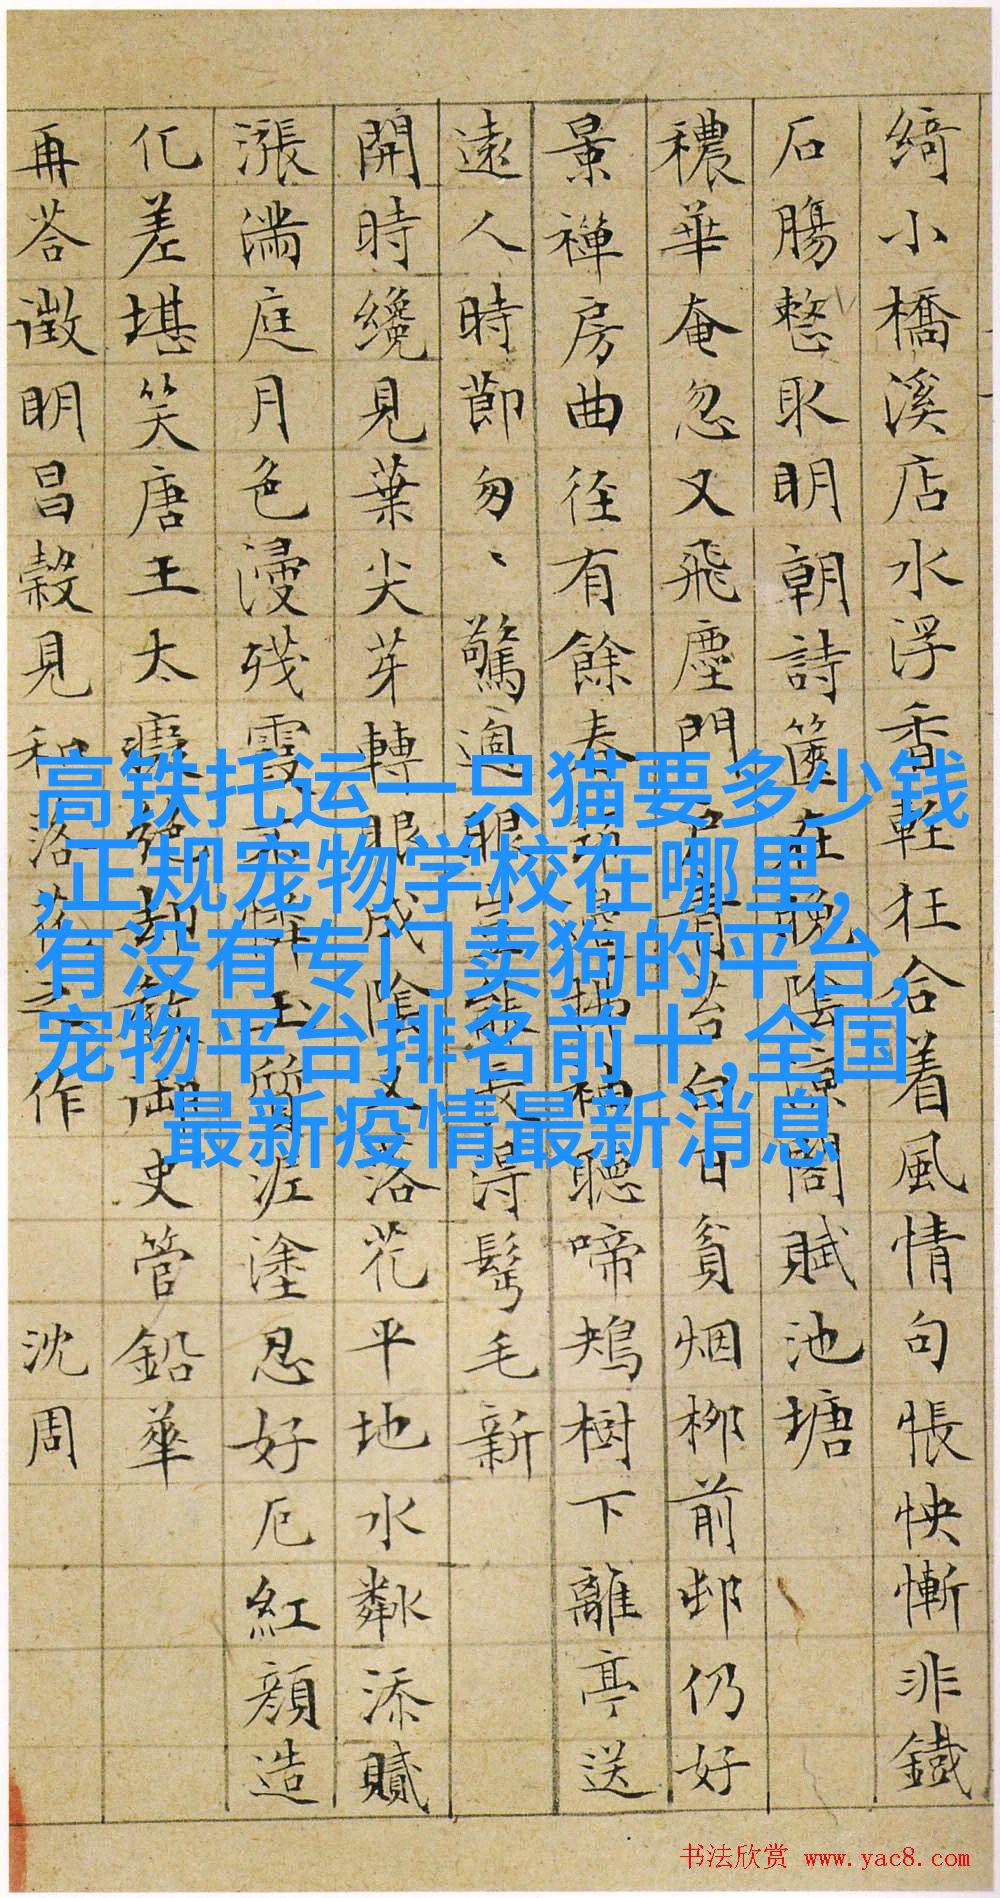 綺小橋溪店水浮香輕狂合着風情句悵怏慚非鐵
石腸愁取明朝詩篋在晚陰凉閣賦池塘
穠華奄忽又飛塵門青苔白日貧烟柳前邨仍好
景禪房曲徑有餘春袖聽啼鴂樹下離亭送
遠人時節匆〻驚過眼得髩毛新
開時纔見葉尖芽轉眼成陰又落花平地水粼添贜
漲滿庭月色漫殘霞玉質泥塗忍好厄紅顏造
化差堪笑唐王太癡絶劫御史管鉛華
再荅徵明昌穀見和落花之作 沈周
高铁托运一只猫要多少钱
,正规宠物学校在哪里,
有没有专门卖狗的平台,
宠物平台排名前十,全国
最新疫情最新消息
书法欣赏 www.yac8.com